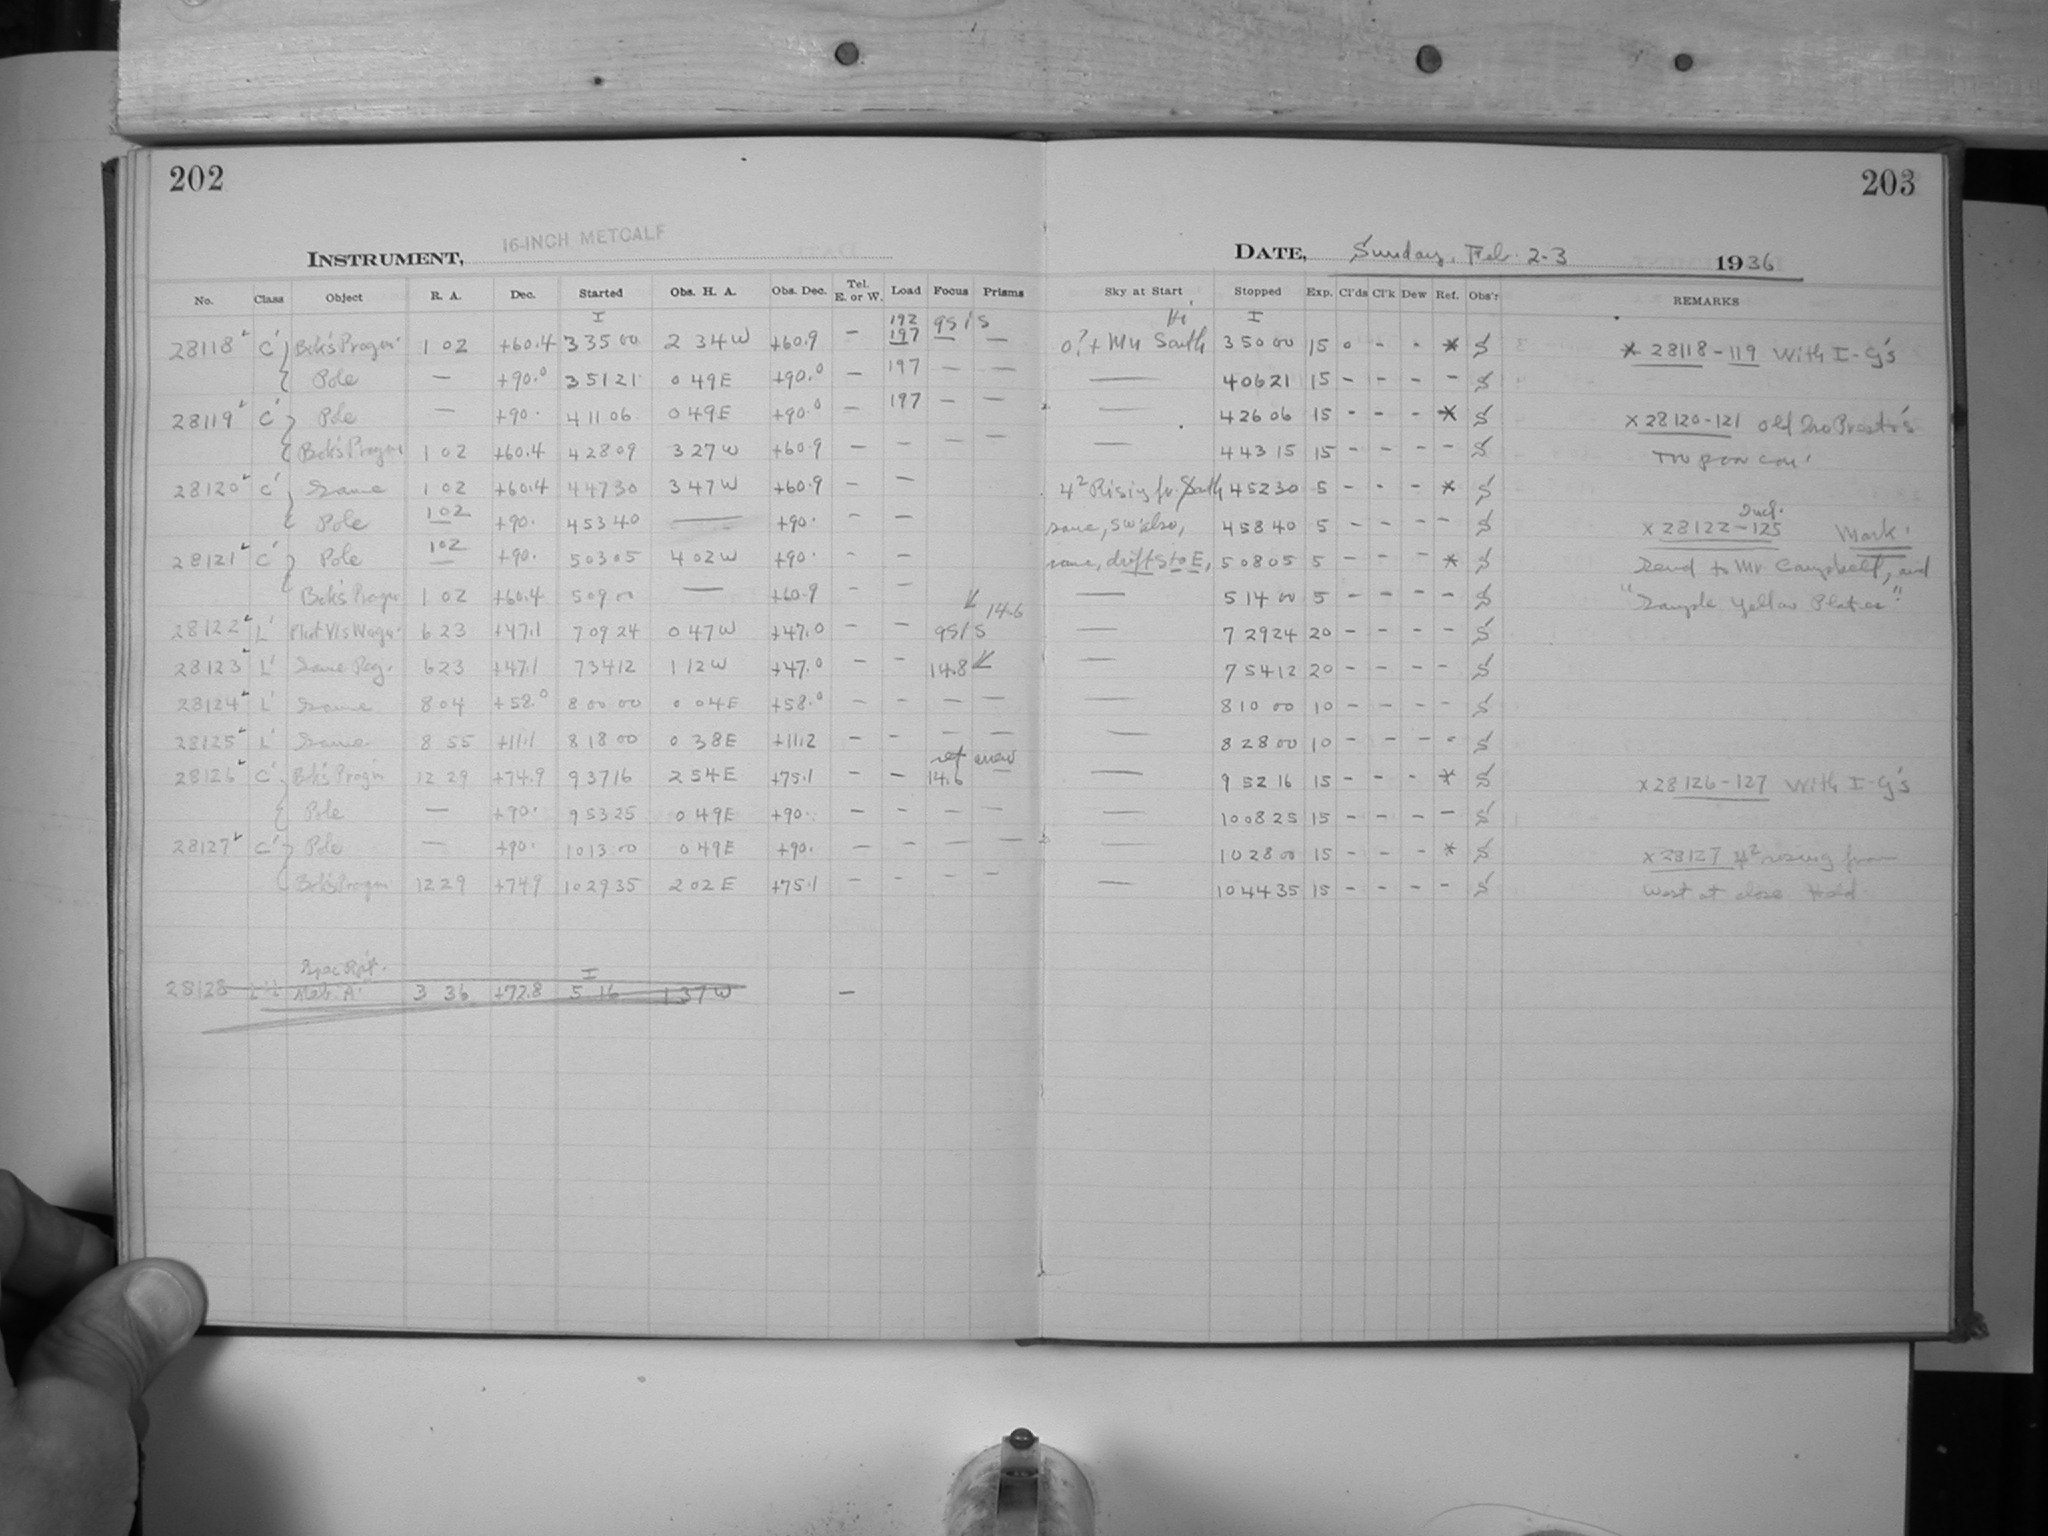 202
203
INSTRUMENT, 16-INCH METCALF
DATE, Sunday, Feb. 2-3 1936
No. Class Object R. A. Dec. Started Obs. H. A. Obs. Dec. Tel. E. or W. Load Focus Prisms Sky at Start Stopped Exp. Cl'ds Cl'k Dew Ref. Obs'r REMARKS
I 192 I
28118 C' Bok's Progm. 1 02 +60.4 3 35 00 2 34 W +60.9 — 197 95/S — 0?+ Mn South 3 50 00 15 0 - - * S * 28118-119 With I-G's
Pole — +90.0 3 51 21 0 49 E +90.0 — 197 — — — 4 06 21 15 - - - - S
28119 C' Pole — +90. 4 11 06 0 49 E +90.0 — 197 — — — 4 26 06 15 - - - * S x 28120-121 old
Bok's Progm 1 02 +60.4 4 28 09 3 27 W +60.9 — — — — — 4 43 15 15 - - - - S
28120 C' Same 1 02 +60.4 4 47 30 3 47 W +60.9 — — 4² Rising fr. South 4 52 30 5 - - - * S
Pole 1 02 +90. 4 53 40 — +90. — — same, SW also, 4 58 40 5 - - - - S x 28122-125 Incl. Mark.
28121 C' Pole 1 02 +90. 5 03 05 4 02 W +90. - - same, drift S to E, 5 08 05 5 - - - * S Send to Mr. Campbell, and
Bok's Progm 1 02 +60.4 5 09 00 — +60.9 - - — 5 14 00 5 - - - - S "Sample Yellow Plates"
14.6
28122 L' 6 23 +47.1 7 09 24 0 47 W +47.0 - - 95/S — 7 29 24 20 - - - - S
28123 L' Same Reg. 6 23 +47.1 7 34 12 1 12 W +47.0 - - 14.8 — 7 54 12 20 - - - - S
28124 L' Same 8 04 +58.0 8 00 00 0 04 E +58.0 - - — — — 8 10 00 10 - - - - S
28125 L' Same 8 55 +11.1 8 18 00 0 38 E +11.2 - - — — — 8 28 00 10 - - - - S
28126 C' Bok's Progm 12 29 +74.9 9 37 16 2 54 E +75.1 - - 14.6 — — 9 52 16 15 - - - * S x 28126-127 With I-G's
Pole — +90. 9 53 25 0 49 E +90. - - — — — 10 08 25 15 - - - - S
28127 C' Pole — +90. 10 13 00 0 49 E +90. - - — — — 10 28 00 15 - - - * S x 28127 4² rising from
Bok's Progm 12 29 +74.9 10 29 35 2 02 E +75.1 - - — — — 10 44 35 15 - - - - S West at close
I
28128 Met. A. 3 36 +72.8 5 16 1 37 W —